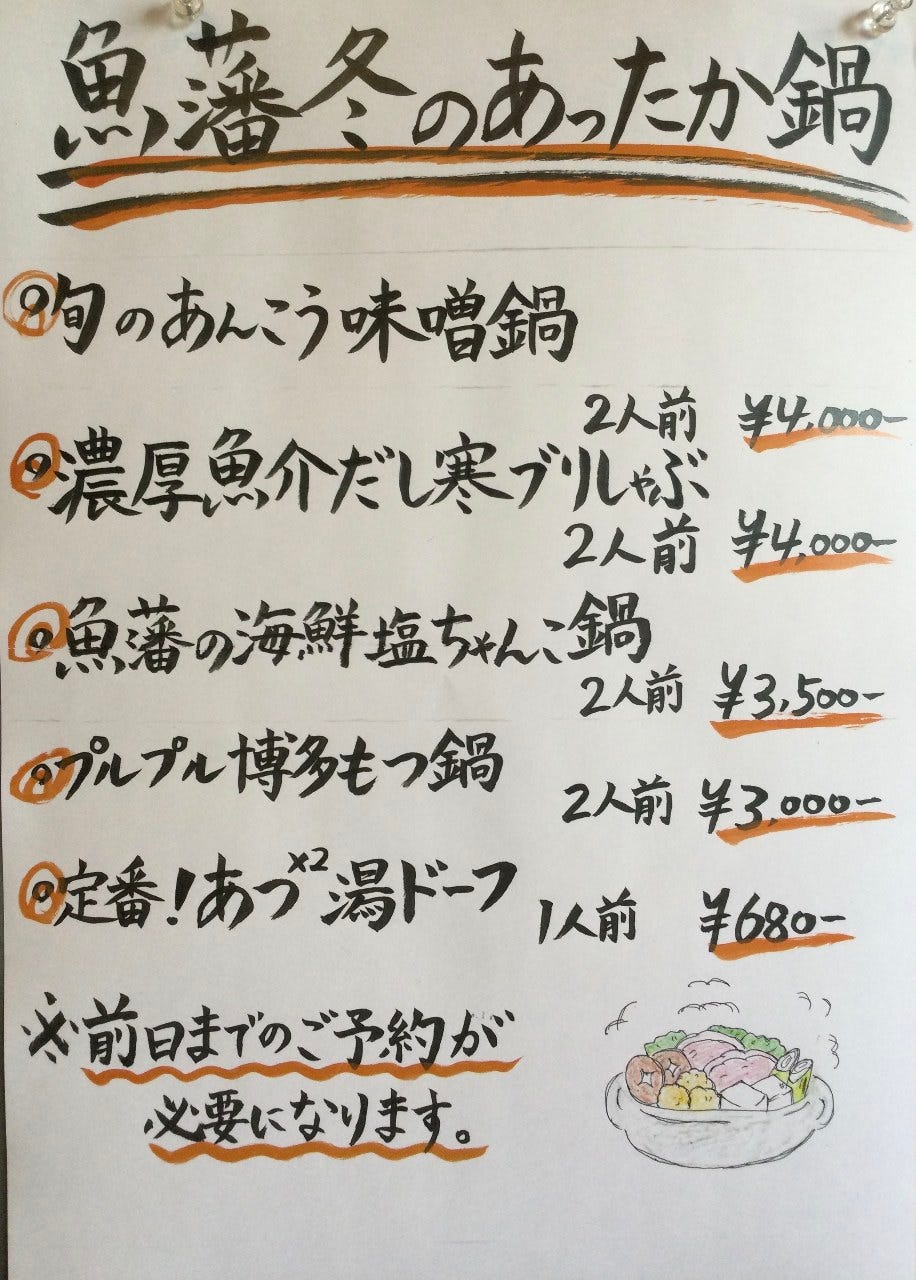 魚藩冬のあったか鍋
旬のあんこう味噌鍋
2人前 ¥4,000-
濃厚魚介だし寒ブリしゃぶ
2人前 ¥4,000-
魚藩の海鮮塩ちゃんこ鍋
2人前 ¥3,500-
プルプル博多もつ鍋
2人前 ¥3,000-
定番!あつ×2湯ドーフ
1人前 ¥680-
※前日までのご予約が
必要になります。